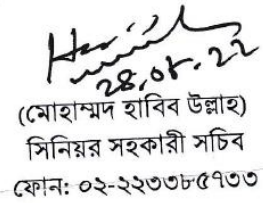 28.08.22
(মোহাম্মদ হাবিব উল্লাহ)
সিনিয়র সহকারী সচিব
ফোন: ০২-২২৩৩৮৫৭৩৩